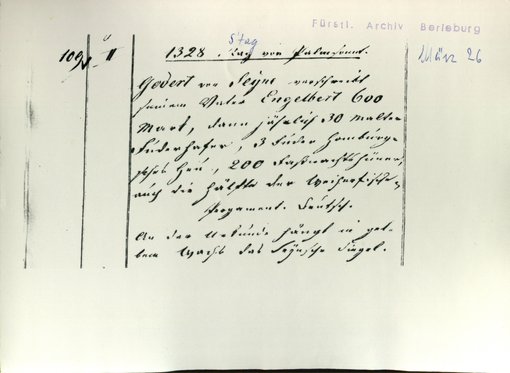 Fürstl. Archiv Berleburg
Stag
109 II 1328. Tag vor Palmsonnt. März 26
Godert von Seyne verschreibt
seinem Vater Engelbert 600
Mark, dann jährlich 30 Malter
Fuderhafer, 3 Fuder Homburg-
sches Heu, 200 Faßnachtshüner,
auch die Hälfte der Weiherfische.
Pergament. Deutsch.
An der Urkunde hängt in gel-
bem Wachs das Seynsche Siegel.